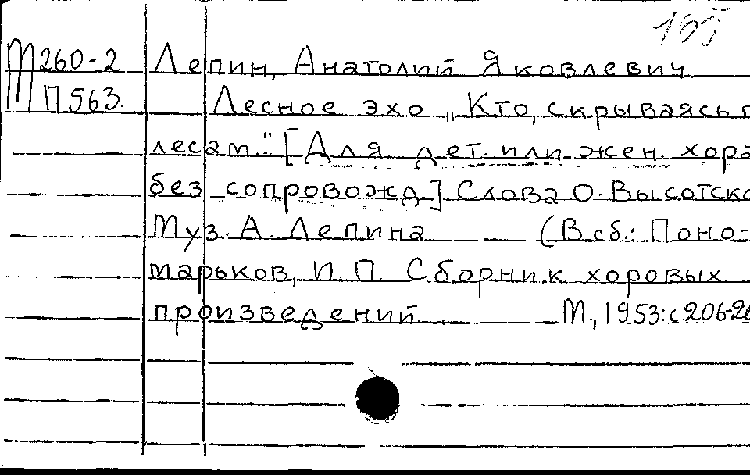 155
М260-2 Лепин, Анатолий Яковлевич
П563. Лесное эхо „Кто, скрываясь п
лесам." [Для дет. или жен. хора
без сопровожд.] Слова О. Высотско
Муз. А. Лепина (В сб.: Поно-
марьков, И. П. Сборник хоровых
произведений М., 1953: с 206-20